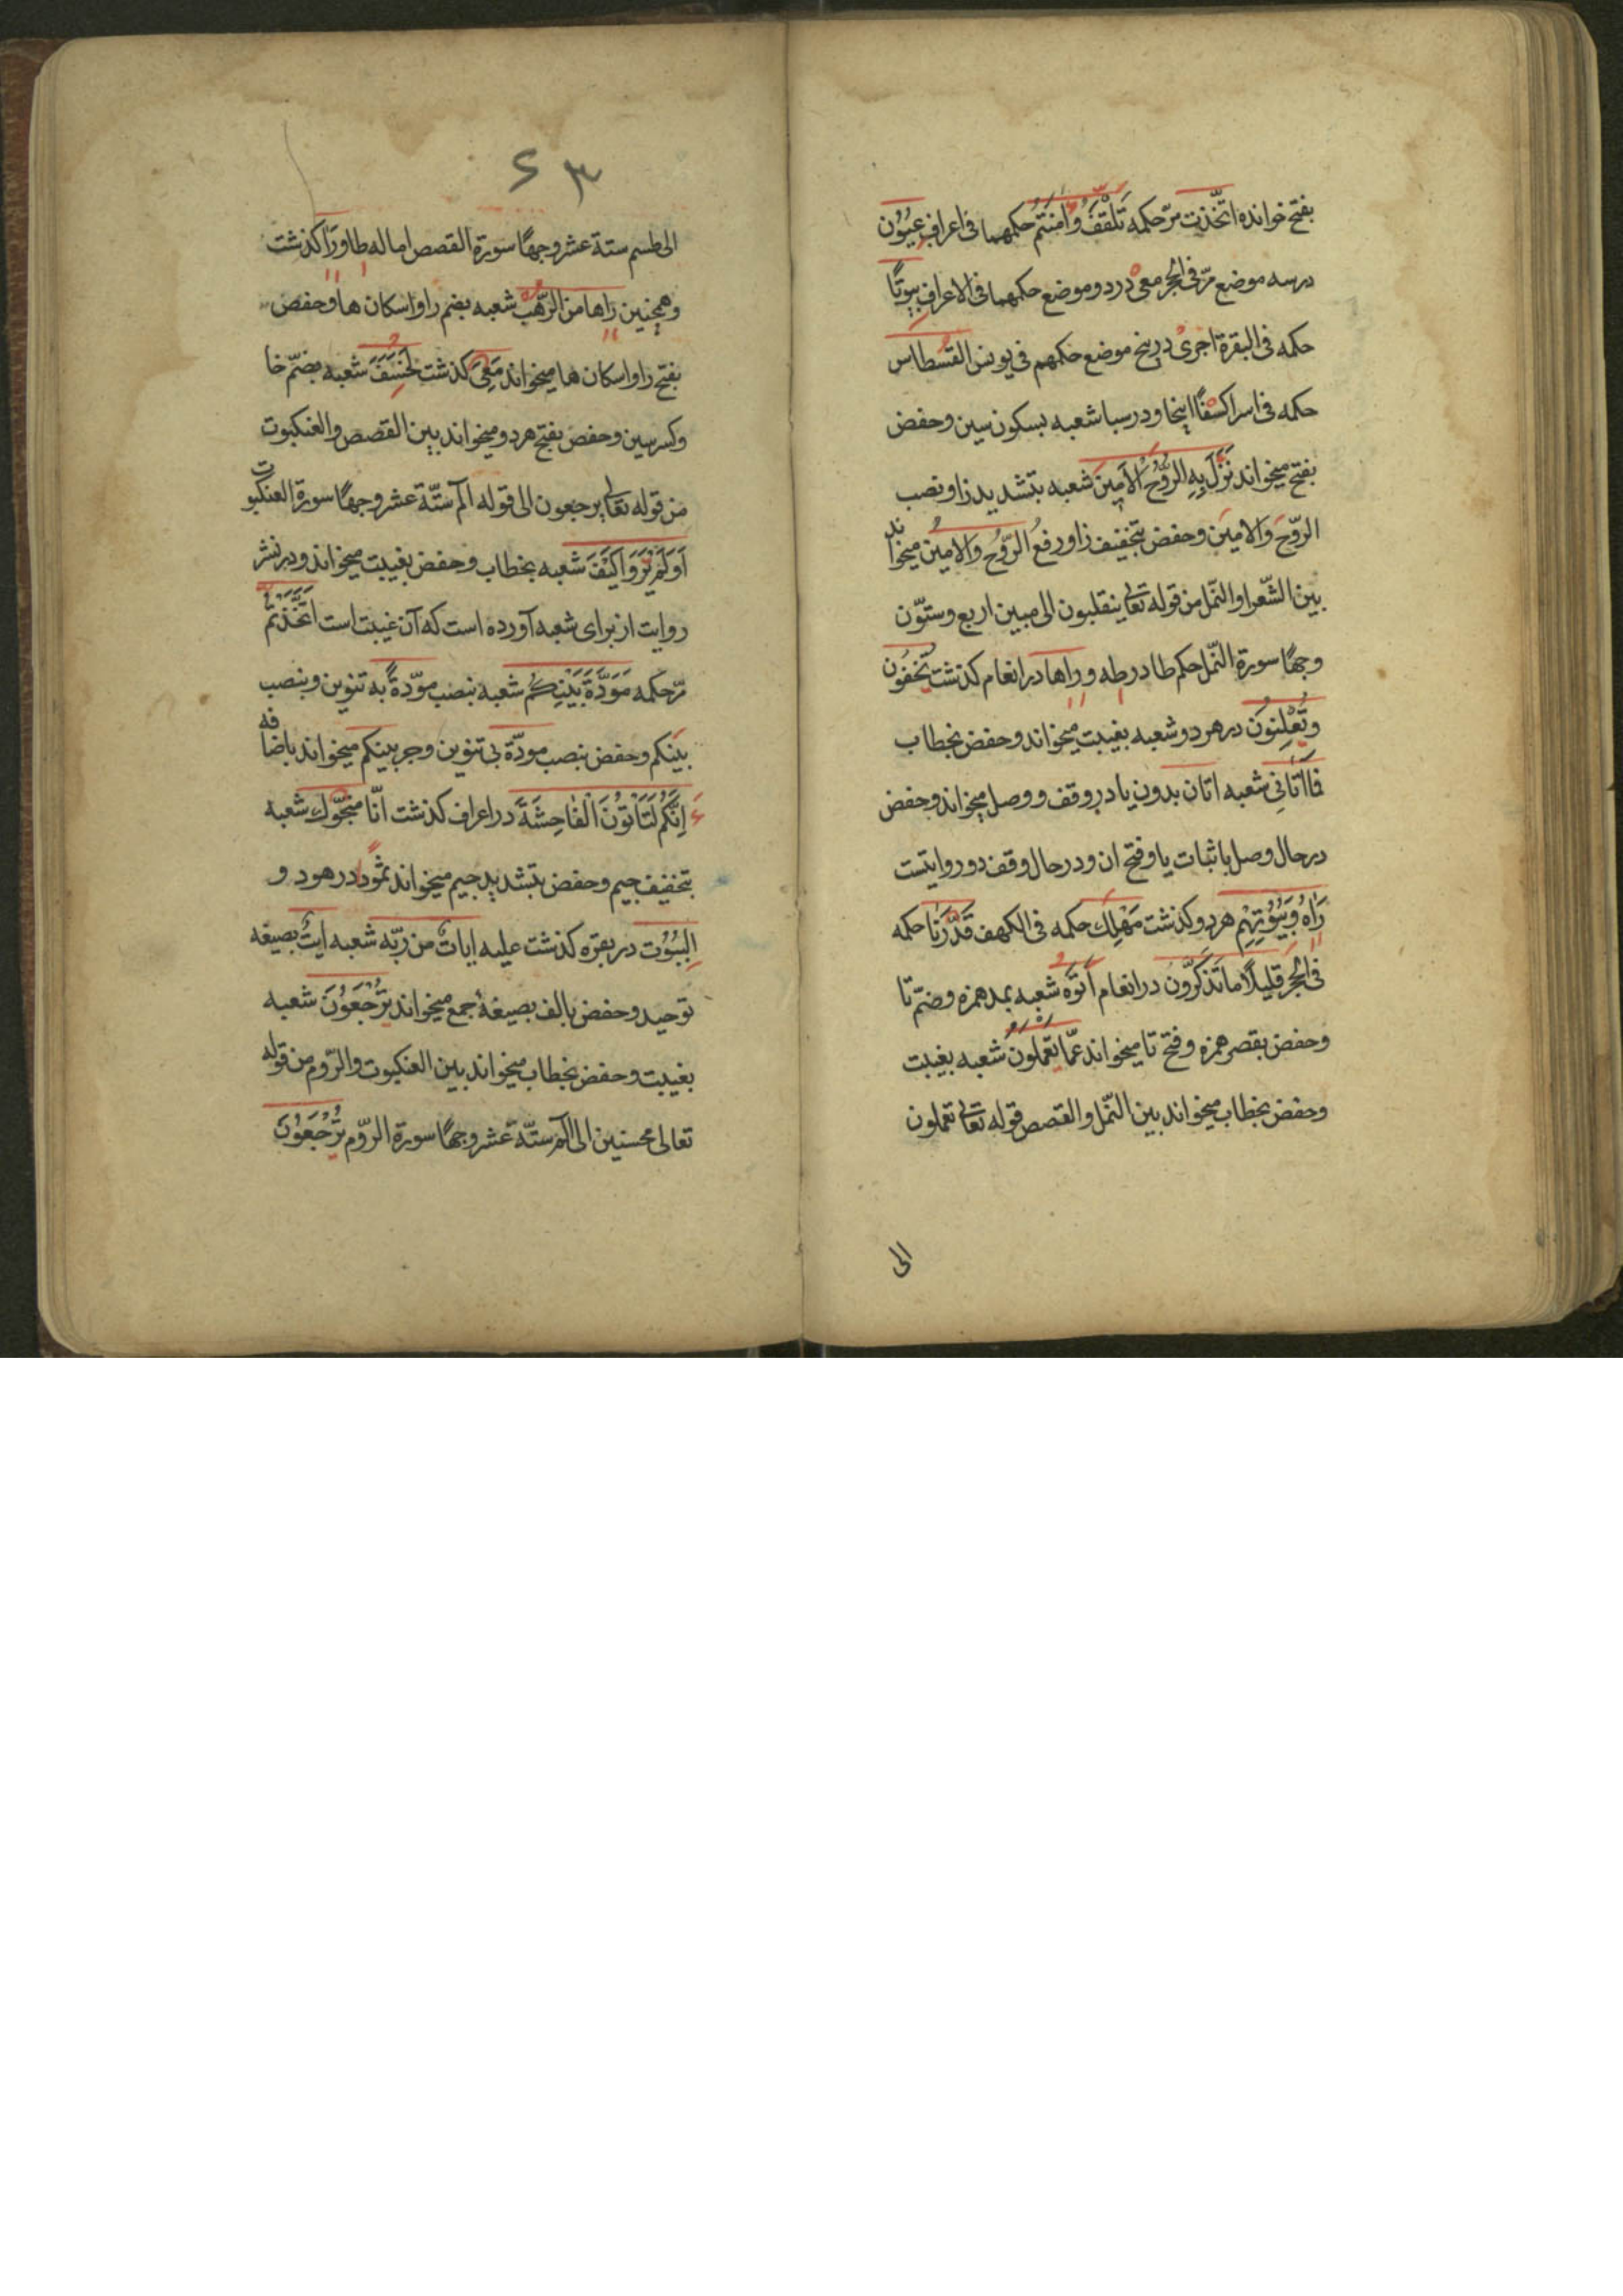 بفتح خوانده اتّخذت مرّ حکمه تَلْقَفُ وَاٰمَنْتُم حکمهما فی اعراف عُیُوُن
درسه موضع مرّ فی الحجر معی درد و موضع حکمهما فی الاعراف بیوتًا
حکمه فی البقرة اجری در پنج موضع حکمهم فی یونس القسطاس
حکمه فی اسرا کسفًا اینجا و در سبا شعبه بسکون سین و حفض
بفتح میخواند نَزَّلَ بِهِ الرُّوُحُ الْاَمِینَ شعبه بتشدید زا و نصب
الرّوحَ وَالامینَ و حفض بتخفیف زا و رفع الرّوُحُ وَالامینُ میخواند
بین الشّعرا و النّمل من قوله تعالی ینقلبون الی مبین اربع و ستّون
وجهًا سورة النّمل حکم طا در طه و راها در انعام کذشت تُخْفُون
وَتُعْلِنوُنَ در هر دو شعبه بغیبت میخواند و حفض بخطاب
فَااٰتَانِی شعبه اتان بدون یا در وقف و وصل میخواند و حفض
در حال وصل با ثبات یا و فتح ان و در حال وقف دو روایتست
رَاٰهُ وَبُیُوُتِهِم هر دو کذشت مَهْلِكَ حکمه فی الکهف قَدَّرْنَا حکمه
فی الحجر قلیلًا ما تَذَکَّرون در انعام اَتَوْهُ شعبه بمد همزه و ضمّ تا
و حفض بقصر همزه و فتح تا میخواند عمّا یعملونَ شعبه بغیبت
و حفض بخطاب میخواند بین النّمل و القصص قوله تعالی تعملون
الی
۶۳
الی طسم ستة عشر وجهًا سورة القصص اماله طا و رَا کذشت
و همچنین راها من الرّهب شعبه بضم را و اسکان ها و حفض
بفتح را و اسکان ها میخواند مَعِیَ کذشت لَخَسَفَ شعبه بضمّ خا
و کسر سین و حفض بفتح هر دو میخواند بین القصص و العنکبوت
من قوله تعالی یرجعون الی قوله الٓم ستّة عشر وجهًا سورة العنکبوت
اَوَلَمْ تَرَوْا کَیْفَ شعبه بخطاب و حفض بغیبت میخواند و در نشر
روایت از برای شعبه آورده است که آن غیبت است اتَّخَذْتُم
مرّ حکمه مَوَدَّةً بَیْنَکُم شعبه بنصب موّدةً به تنوین و بنصب
بینَکم و حفض بنصب مودّة بی تنوین و جر بینکم میخواند باضافه
اِنَّکُمْ لَتَاْتُوُنَ الْفَاحِشَةَ در اعراف کذشت انّا منجّوك شعبه
بتخفیف جیم و حفض بتشدید جیم میخواند ثموُد در هود و
البیُوُت در بقره کذشت علیه ایاتٌ من ربّه شعبه ایتٌ بصیغه
توحید و حفض بالف بصیغهٔ جمع میخواند تُرْجَعُوُنَ شعبه
بغیبت و حفض بخطاب میخواند بین العنکبوت و الرّوم من قوله
تعالی محسنین الی الٓم ستّة عشر وجهًا سورة الرّوم تُرْجَعُوُنَ